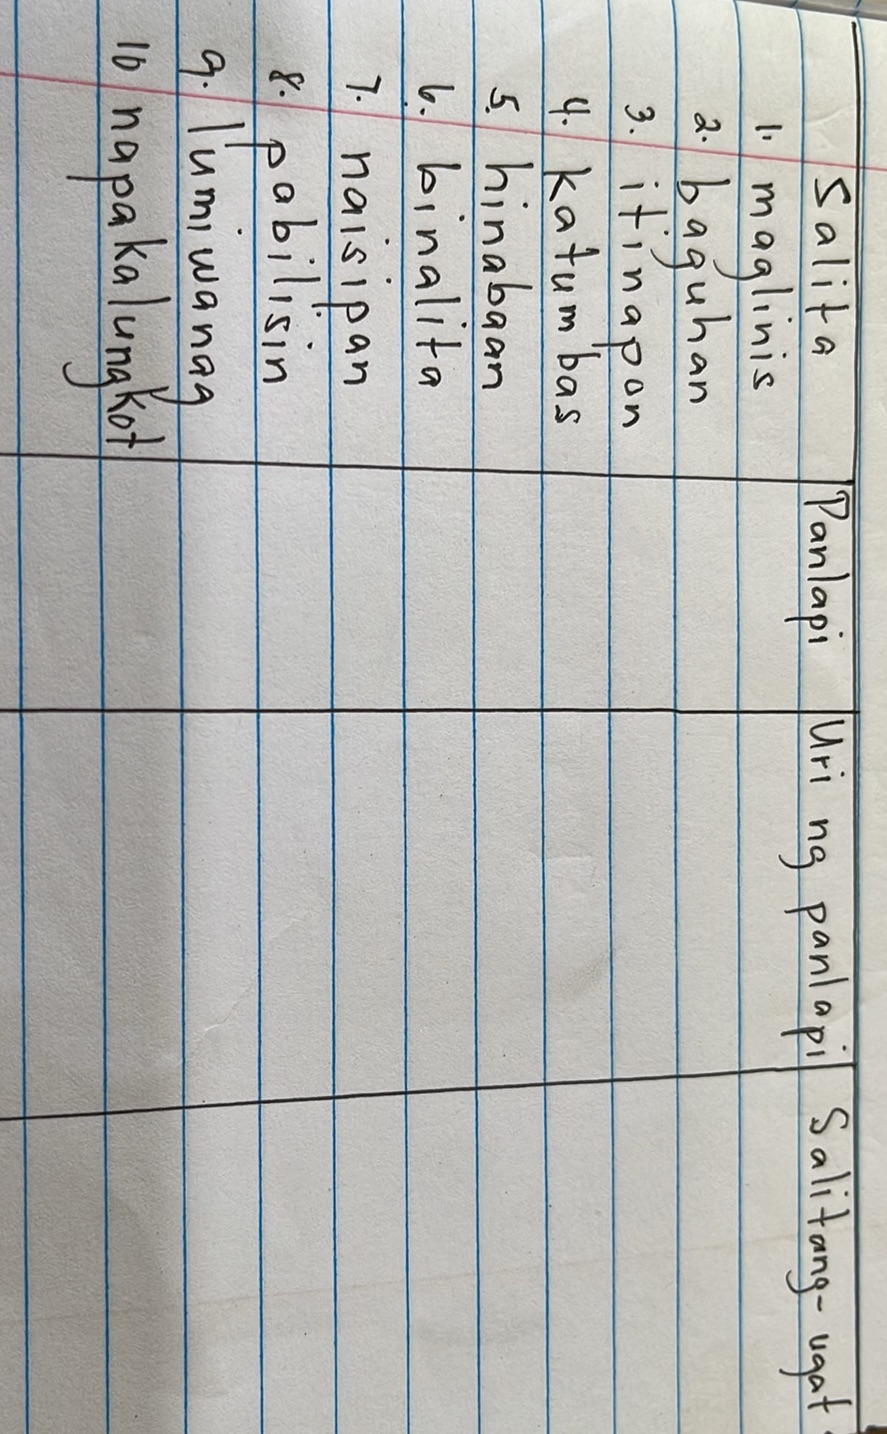 Salita Panlapi Uri ng panlapi Salitang-ugat
1. maglinis
2. baguhan
3. itinapon
4. katumbas
5. hinabaan
6. binalita
7. naisipan
8. pabilisin
9. lumiwanag
10 napakalungkot